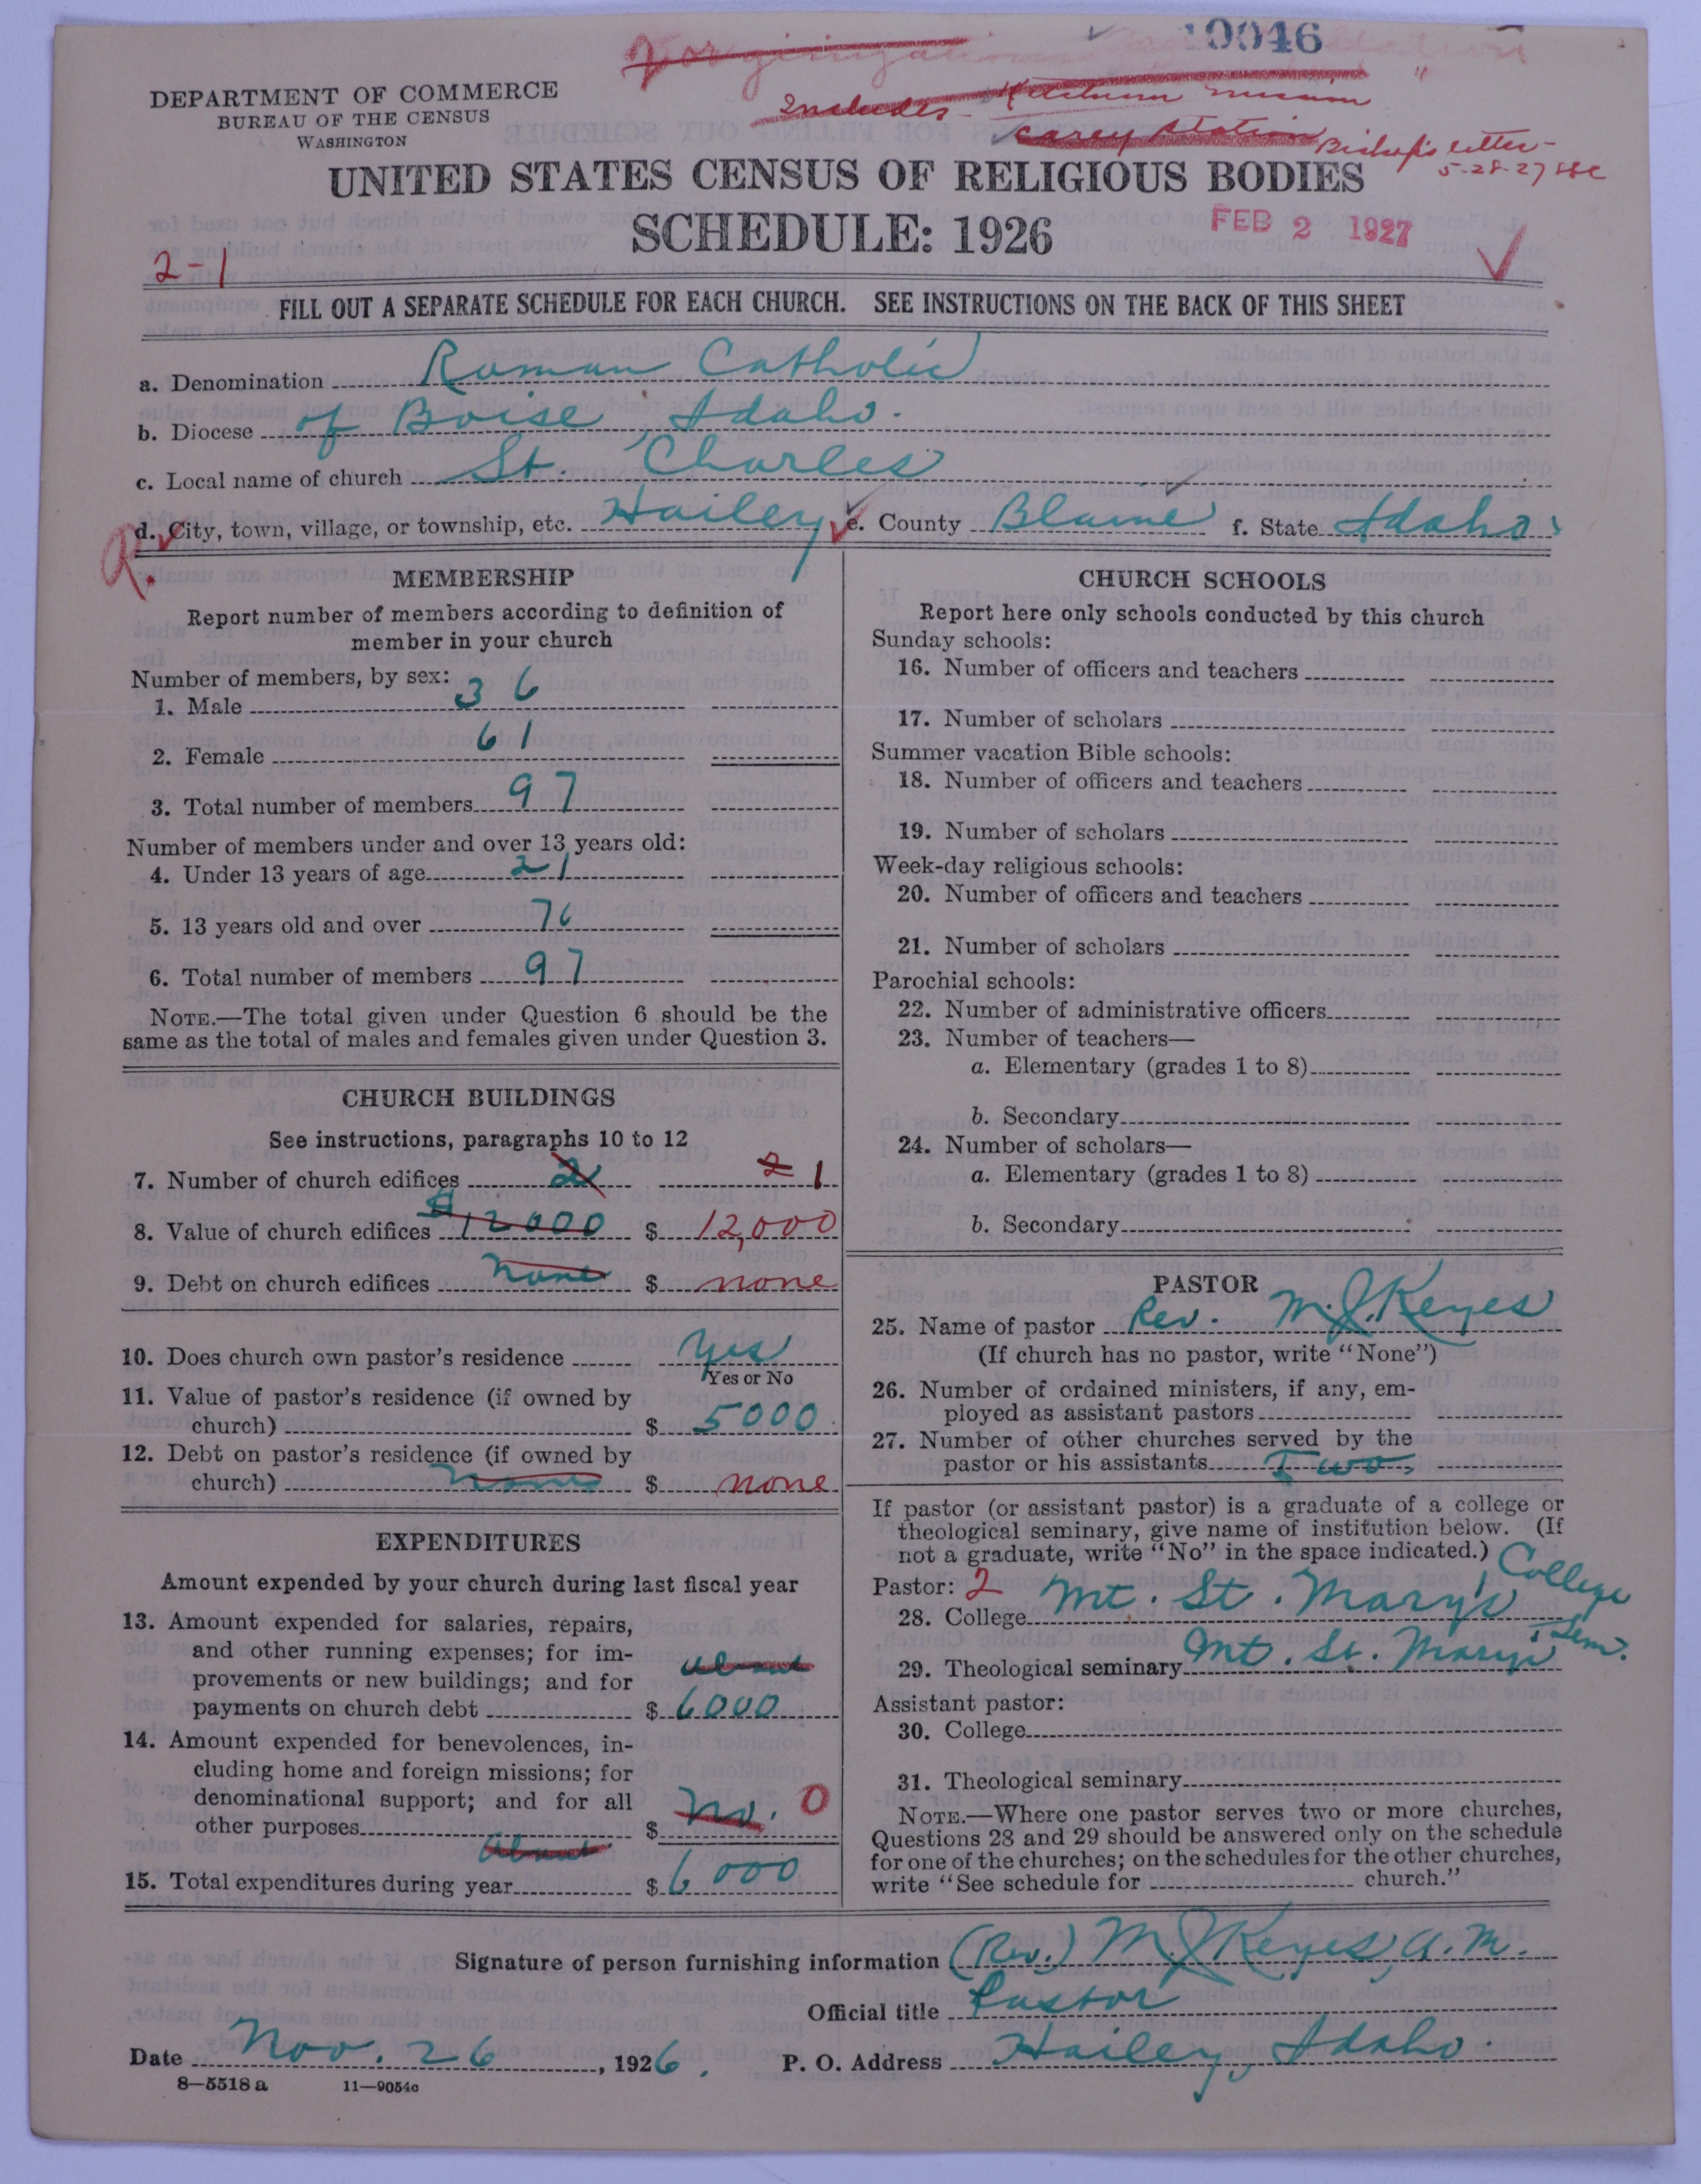 10046
For
Includes - Ketchum Mission "
Carey Station Bishop's letter -
5-28-27
DEPARTMENT OF COMMERCE
BUREAU OF THE CENSUS
WASHINGTON
UNITED STATES CENSUS OF RELIGIOUS BODIES
SCHEDULE: 1926
FEB 2 1927
2-1
FILL OUT A SEPARATE SCHEDULE FOR EACH CHURCH. SEE INSTRUCTIONS ON THE BACK OF THIS SHEET
a. Denomination Roman Catholic
b. Diocese of Boise, Idaho.
c. Local name of church St. Charles
d. City, town, village, or township, etc. Hailey e. County Blaine f. State Idaho
R.
MEMBERSHIP
Report number of members according to definition of
member in your church
Number of members, by sex:
1. Male 36
2. Female 61
3. Total number of members 97
Number of members under and over 13 years old:
4. Under 13 years of age 21
5. 13 years old and over 76
6. Total number of members 97
NOTE.—The total given under Question 6 should be the
same as the total of males and females given under Question 3.
CHURCH BUILDINGS
See instructions, paragraphs 10 to 12
7. Number of church edifices 2 2 1
8. Value of church edifices $12000 $ 12,000
9. Debt on church edifices None $ none
10. Does church own pastor's residence Yes
Yes or No
11. Value of pastor's residence (if owned by
church) $ 5000
12. Debt on pastor's residence (if owned by
church) None $ none
EXPENDITURES
Amount expended by your church during last fiscal year
13. Amount expended for salaries, repairs,
and other running expenses; for im-
provements or new buildings; and for about
payments on church debt $ 6000
14. Amount expended for benevolences, in-
cluding home and foreign missions; for
denominational support; and for all
other purposes $ No. 0
About
15. Total expenditures during year $ 6000
CHURCH SCHOOLS
Report here only schools conducted by this church
Sunday schools:
16. Number of officers and teachers
17. Number of scholars
Summer vacation Bible schools:
18. Number of officers and teachers
19. Number of scholars
Week-day religious schools:
20. Number of officers and teachers
21. Number of scholars
Parochial schools:
22. Number of administrative officers
23. Number of teachers—
a. Elementary (grades 1 to 8)
b. Secondary
24. Number of scholars—
a. Elementary (grades 1 to 8)
b. Secondary
PASTOR
25. Name of pastor Rev. M. J. Keyes
(If church has no pastor, write "None")
26. Number of ordained ministers, if any, em-
ployed as assistant pastors
27. Number of other churches served by the
pastor or his assistants Two,
If pastor (or assistant pastor) is a graduate of a college or
theological seminary, give name of institution below. (If
not a graduate, write "No" in the space indicated.)
Pastor: 2
28. College Mt. St. Mary's College
29. Theological seminary Mt. St. Mary's Sem.
Assistant pastor:
30. College
31. Theological seminary
NOTE.—Where one pastor serves two or more churches,
Questions 28 and 29 should be answered only on the schedule
for one of the churches; on the schedules for the other churches,
write "See schedule for church."
Signature of person furnishing information (Rev.) M. J. Keyes, A.M.
Official title Pastor
Date Nov. 26, 1926. P. O. Address Hailey, Idaho.
8—5518 a 11—9054c